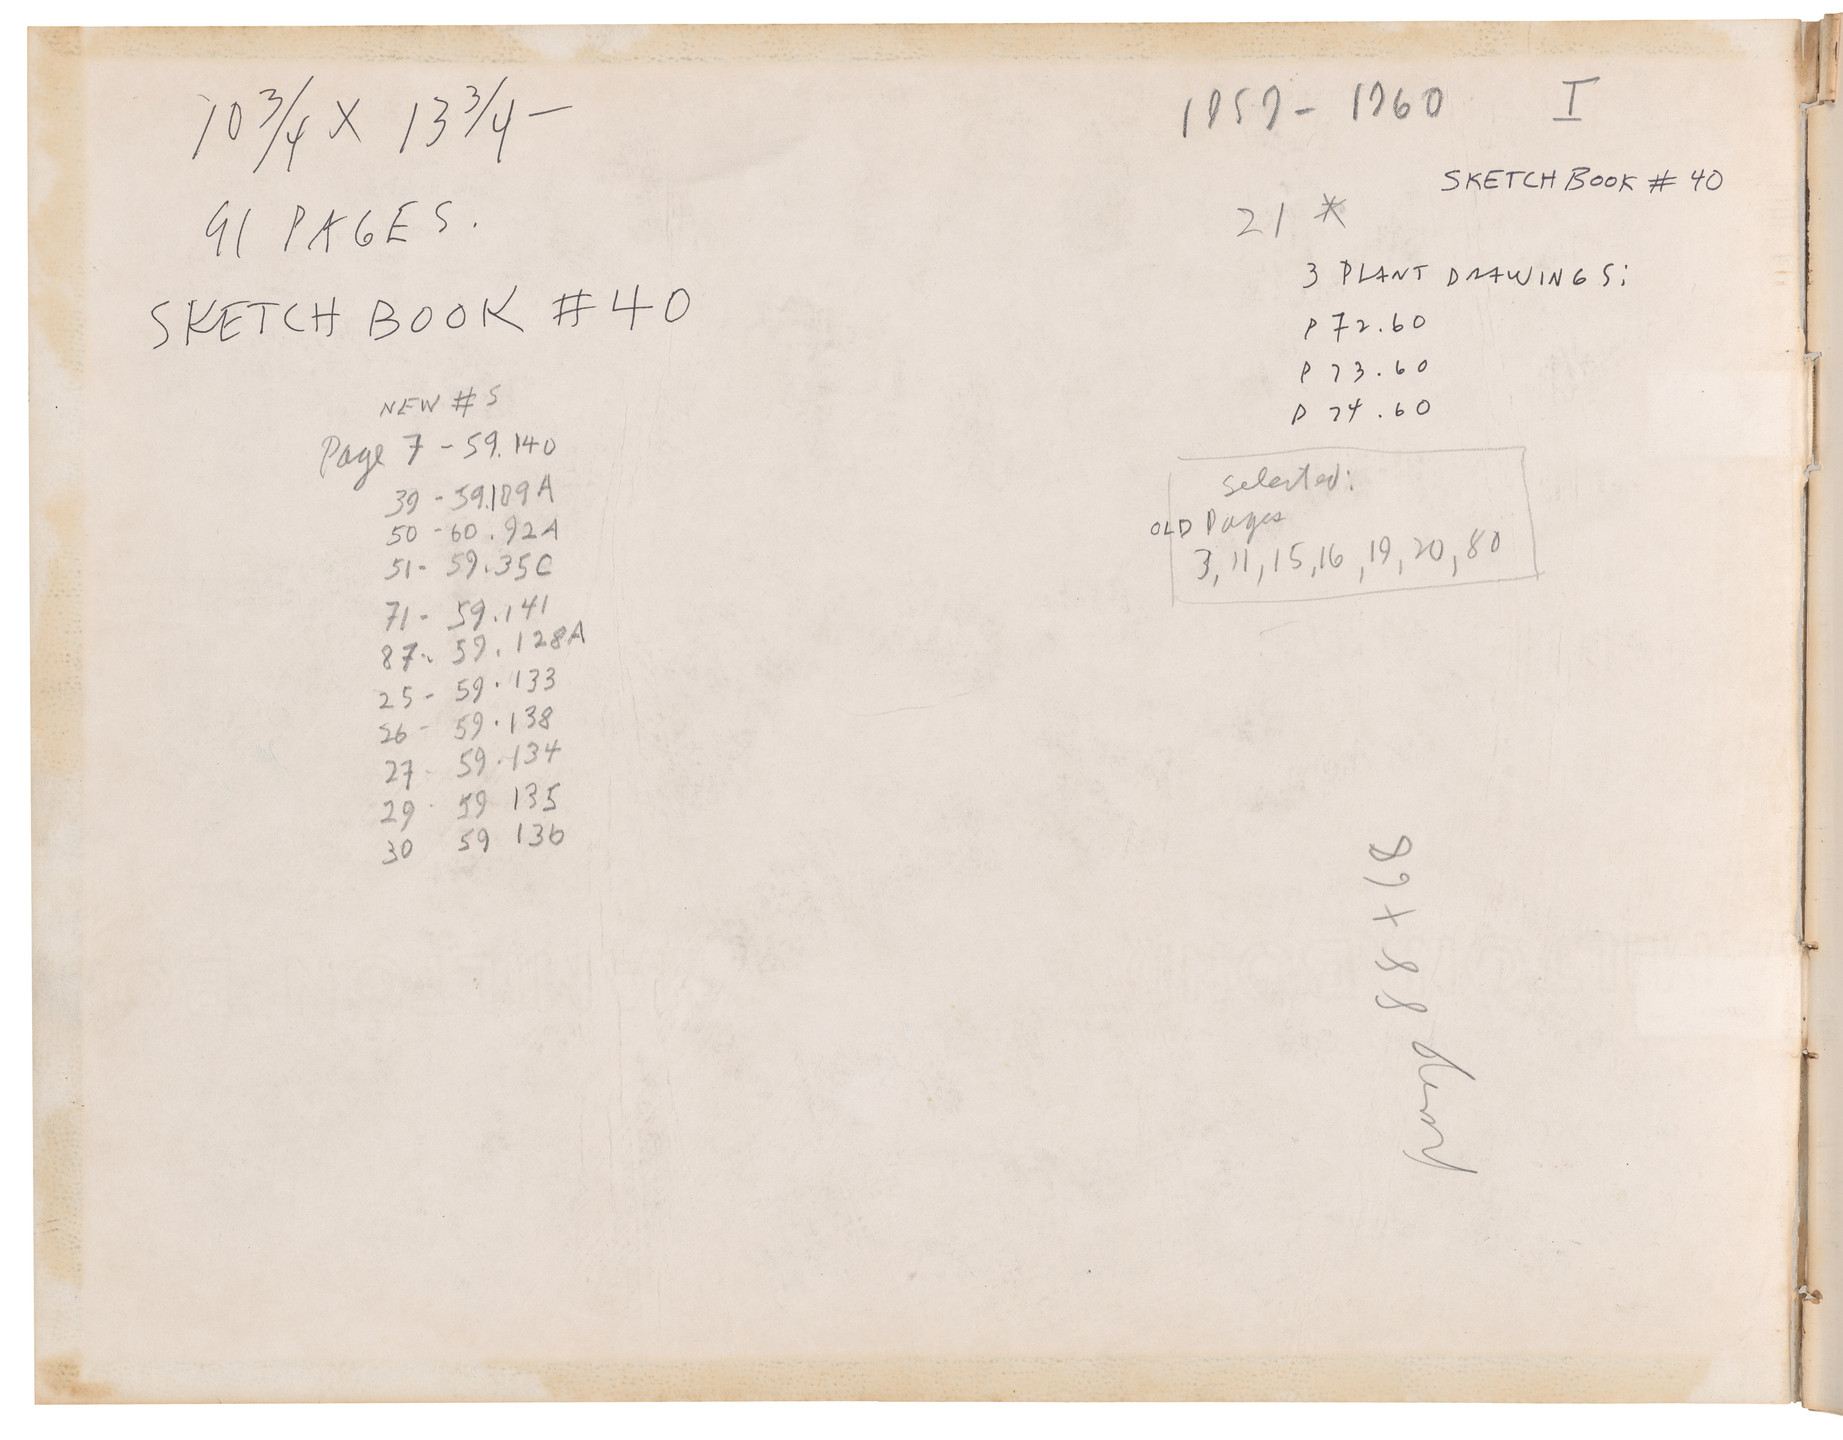 10 3/4 X 13 3/4 —
91 PAGES.
SKETCH BOOK #40
NEW #S
Page 7 - 59.140
39 - 59.189A
50 - 60.92A
51 - 59.35C
71 - 59.141
87 - 59.128A
25 - 59.133
26 - 59.138
27 - 59.134
29 - 59 135
30 59 136
1959 - 1960 I
SKETCH BOOK # 40
21 *
3 PLANT DRAWINGS:
P 72.60
P 73.60
P 74.60
Selected:
OLD Pages
3, 11, 15, 16, 19, 20, 80